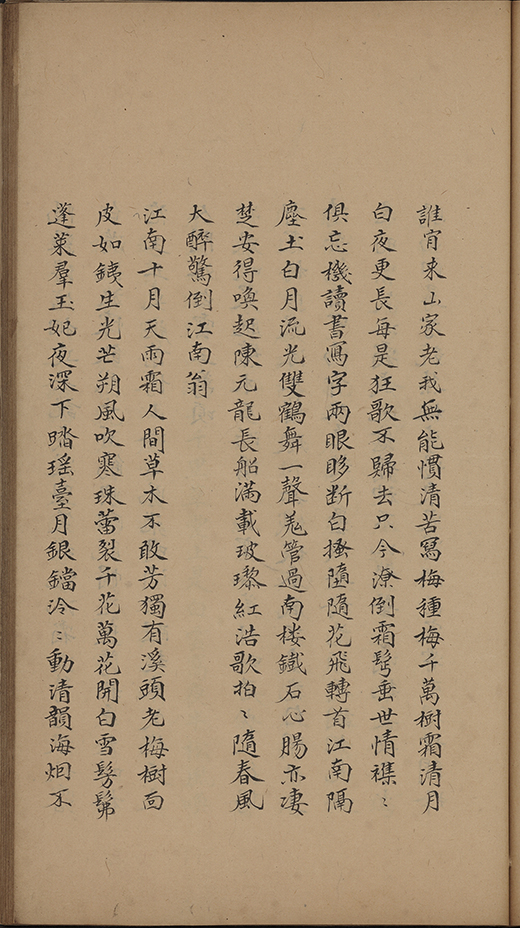 誰肎来山家老我無能慣清苦冩梅種梅千萬樹霜清月
白夜更長每是狂歌不歸去只今潦倒霜鬂垂世情襍〻
俱忘機讀書冩字兩眼眵断白搔墮隨花飛轉首江南隔
塵土白月流光雙鶴舞一聲羌管過南楼鐵石心腸亦凄
楚安得喚起陳元龍長船滿載玻瓈紅浩歌拍〻隨春風
大醉驚倒江南翁
江南十月天雨霜人間草木不敢芳獨有溪頭老梅樹面
皮如鐵生光芒朔風吹寒珠蕾裂千花萬花開白雪髣髴
蓬萊羣玉妃夜深下踏瑶臺月銀鐺泠〻動清韻海烟不